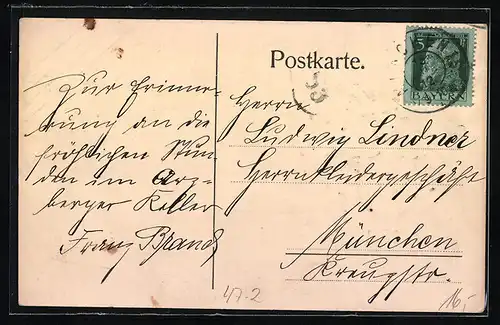 Postkarte.
5
BAYERN
Zur Erinne-
rung an die
fröhlichen Stun-
den im Arz-
berger Keller
Franz Brand
Herrn
Ludwig Lindner
Herrnkleidergeschäft
München
Kreuzstr.
47-2
16,-